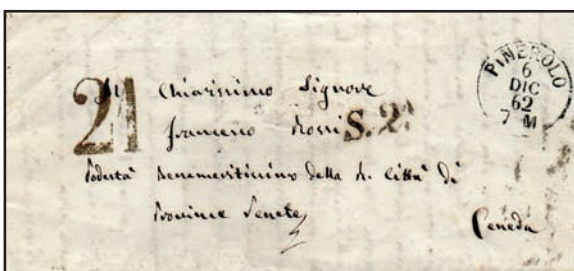 PINEROLO
6
DIC
62
7 M
21
Chiarissimo Signore
Rossi
S. 2ª
Podestà Benemeritissimo della R. Città di
Provincie Venete
Ceneda